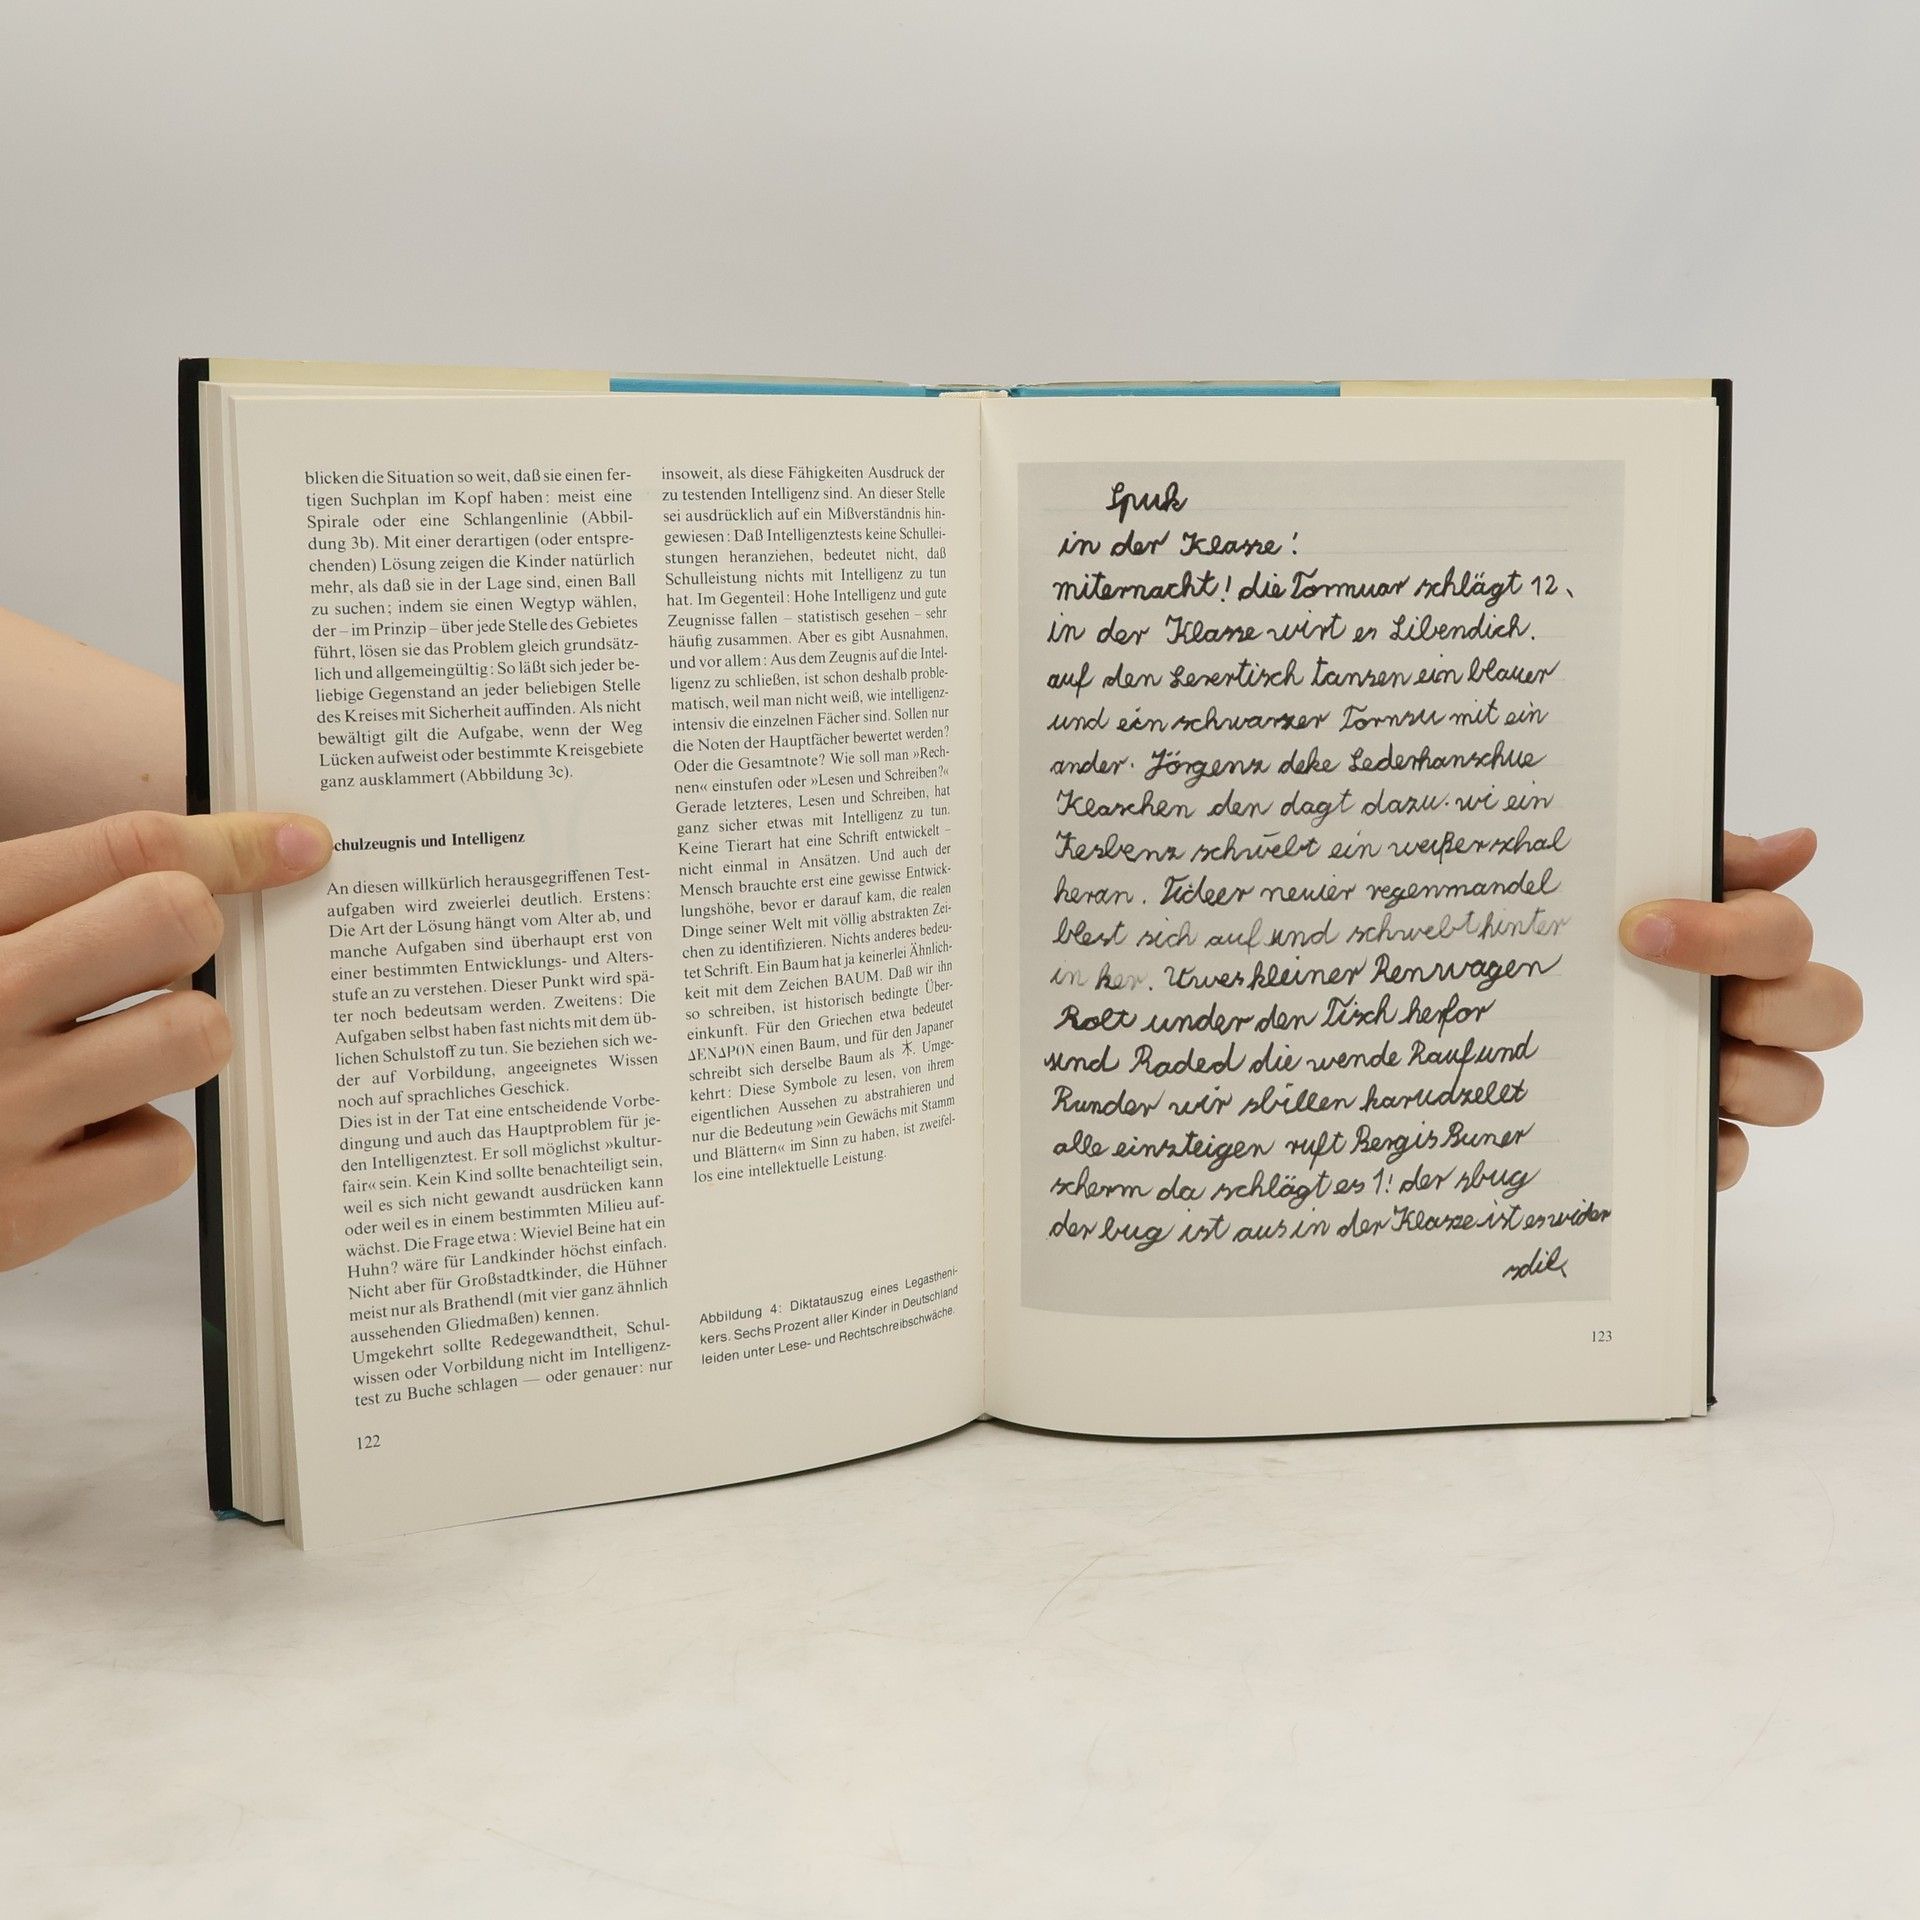 blicken die Situation so weit, daß sie einen fer-
tigen Suchplan im Kopf haben: meist eine
Spirale oder eine Schlangenlinie (Abbil-
dung 3b). Mit einer derartigen (oder entspre-
chenden) Lösung zeigen die Kinder natürlich
mehr, als daß sie in der Lage sind, einen Ball
zu suchen; indem sie einen Wegtyp wählen,
der – im Prinzip – über jede Stelle des Gebietes
führt, lösen sie das Problem gleich grundsätz-
lich und allgemeingültig: So läßt sich jeder be-
liebige Gegenstand an jeder beliebigen Stelle
des Kreises mit Sicherheit auffinden. Als nicht
bewältigt gilt die Aufgabe, wenn der Weg
Lücken aufweist oder bestimmte Kreisgebiete
ganz ausklammert (Abbildung 3c).
chulzeugnis und Intelligenz
An diesen willkürlich herausgegriffenen Test-
aufgaben wird zweierlei deutlich. Erstens:
Die Art der Lösung hängt vom Alter ab, und
manche Aufgaben sind überhaupt erst von
einer bestimmten Entwicklungs- und Alters-
stufe an zu verstehen. Dieser Punkt wird spä-
ter noch bedeutsam werden. Zweitens: Die
Aufgaben selbst haben fast nichts mit dem üb-
lichen Schulstoff zu tun. Sie beziehen sich we-
der auf Vorbildung, angeeignetes Wissen
noch auf sprachliches Geschick.
Dies ist in der Tat eine entscheidende Vorbe-
dingung und auch das Hauptproblem für je-
den Intelligenztest. Er soll möglichst »kultur-
fair« sein. Kein Kind sollte benachteiligt sein,
weil es sich nicht gewandt ausdrücken kann
oder weil es in einem bestimmten Milieu auf-
wächst. Die Frage etwa: Wieviel Beine hat ein
Huhn? wäre für Landkinder höchst einfach.
Nicht aber für Großstadtkinder, die Hühner
meist nur als Brathendl (mit vier ganz ähnlich
aussehenden Gliedmaßen) kennen.
Umgekehrt sollte Redegewandtheit, Schul-
wissen oder Vorbildung nicht im Intelligenz-
test zu Buche schlagen — oder genauer: nur
122
insoweit, als diese Fähigkeiten Ausdruck der
zu testenden Intelligenz sind. An dieser Stelle
sei ausdrücklich auf ein Mißverständnis hin-
gewiesen: Daß Intelligenztests keine Schullei-
stungen heranziehen, bedeutet nicht, daß
Schulleistung nichts mit Intelligenz zu tun
hat. Im Gegenteil: Hohe Intelligenz und gute
Zeugnisse fallen – statistisch gesehen – sehr
häufig zusammen. Aber es gibt Ausnahmen,
und vor allem: Aus dem Zeugnis auf die Intel-
ligenz zu schließen, ist schon deshalb proble-
matisch, weil man nicht weiß, wie intelligenz-
intensiv die einzelnen Fächer sind. Sollen nur
die Noten der Hauptfächer bewertet werden?
Oder die Gesamtnote? Wie soll man »Rech-
nen« einstufen oder »Lesen und Schreiben?«
Gerade letzteres, Lesen und Schreiben, hat
ganz sicher etwas mit Intelligenz zu tun.
Keine Tierart hat eine Schrift entwickelt –
nicht einmal in Ansätzen. Und auch der
Mensch brauchte erst eine gewisse Entwick-
lungshöhe, bevor er darauf kam, die realen
Dinge seiner Welt mit völlig abstrakten Zei-
chen zu identifizieren. Nichts anderes bedeu-
tet Schrift. Ein Baum hat ja keinerlei Ähnlich-
keit mit dem Zeichen BAUM. Daß wir ihn
so schreiben, ist historisch bedingte Über-
einkunft. Für den Griechen etwa bedeutet
ΔΕΝΔΡΟΝ einen Baum, und für den Japaner
schreibt sich derselbe Baum als 木. Umge-
kehrt: Diese Symbole zu lesen, von ihrem
eigentlichen Aussehen zu abstrahieren und
nur die Bedeutung »ein Gewächs mit Stamm
und Blättern« im Sinn zu haben, ist zweifel-
los eine intellektuelle Leistung.
Abbildung 4: Diktatauszug eines Legastheni-
kers. Sechs Prozent aller Kinder in Deutschland
leiden unter Lese- und Rechtschreibschwäche.
Spuk
in der Klasse!
miternacht! die Tormuar schlägt 12,
in der Klasse wirt es Libendich.
auf den Lesertisch tansen ein blauer
und ein schwarzer Tornsu mit ein
ander. Jörgens deke Lederhanschue
Klaschen den dagt dazu. wi ein
schwebt ein weißer schal
heran. neuier regenmandel
blest sich auf und schwebt hinter
in her. Uwes kleiner Renwagen
Rolt under den Tisch herfor
und Raded die wende Rauf und
Runder wir sbillen karudzellt
alle einsteigen ruft Bergis Buner
scherm da schlägt es 1! der sbug
der bug ist aus in der Klasse ist es wider
sdil,
123